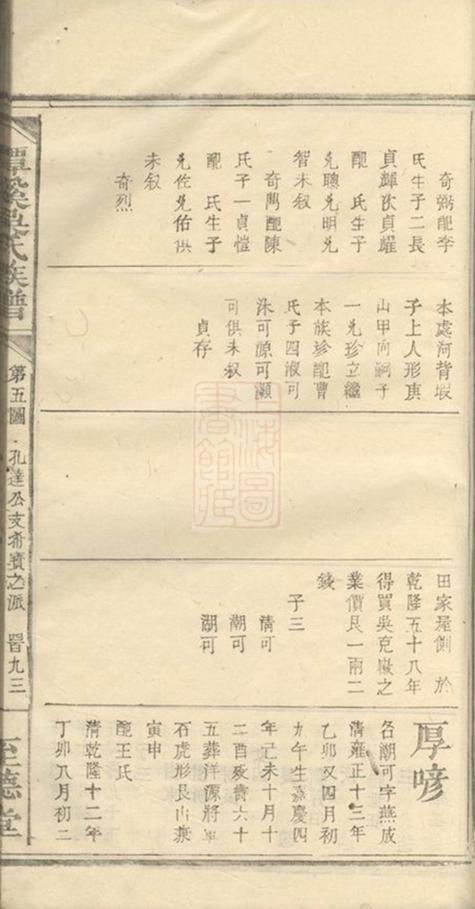 奇弼配李
氏生子二長
貞輝次貞耀
配　氏生子
兄聰兄明兄
智未叙
奇雋配陳
氏子一貞愷
配　氏生子
兄佐兄佑俱
未叙
奇烈
本處河背塅
子上人形庚
山甲向嗣子
一兄珍立繼
本族珍配曹
氏子四淑可
洙可源可灝
可俱未叙
貞存
田家屋側於
乾隆五十八年
得買吳克嶶之
業價艮一兩二
錢
子三
清可
潮可
湖可
厚嗲
名潮可字燕成
清雍正十三年
乙卯又四月初
九午生嘉慶四
年己未十月十
二酉歿壽六十
五葬洋源將軍
石虎形艮山兼
寅申
配王氏
清乾隆十二年
丁卯八月初二
潭溪吳氏族譜
第五圖
孔達公支希賓之派
晉九三
至德堂
上海圖
書館藏